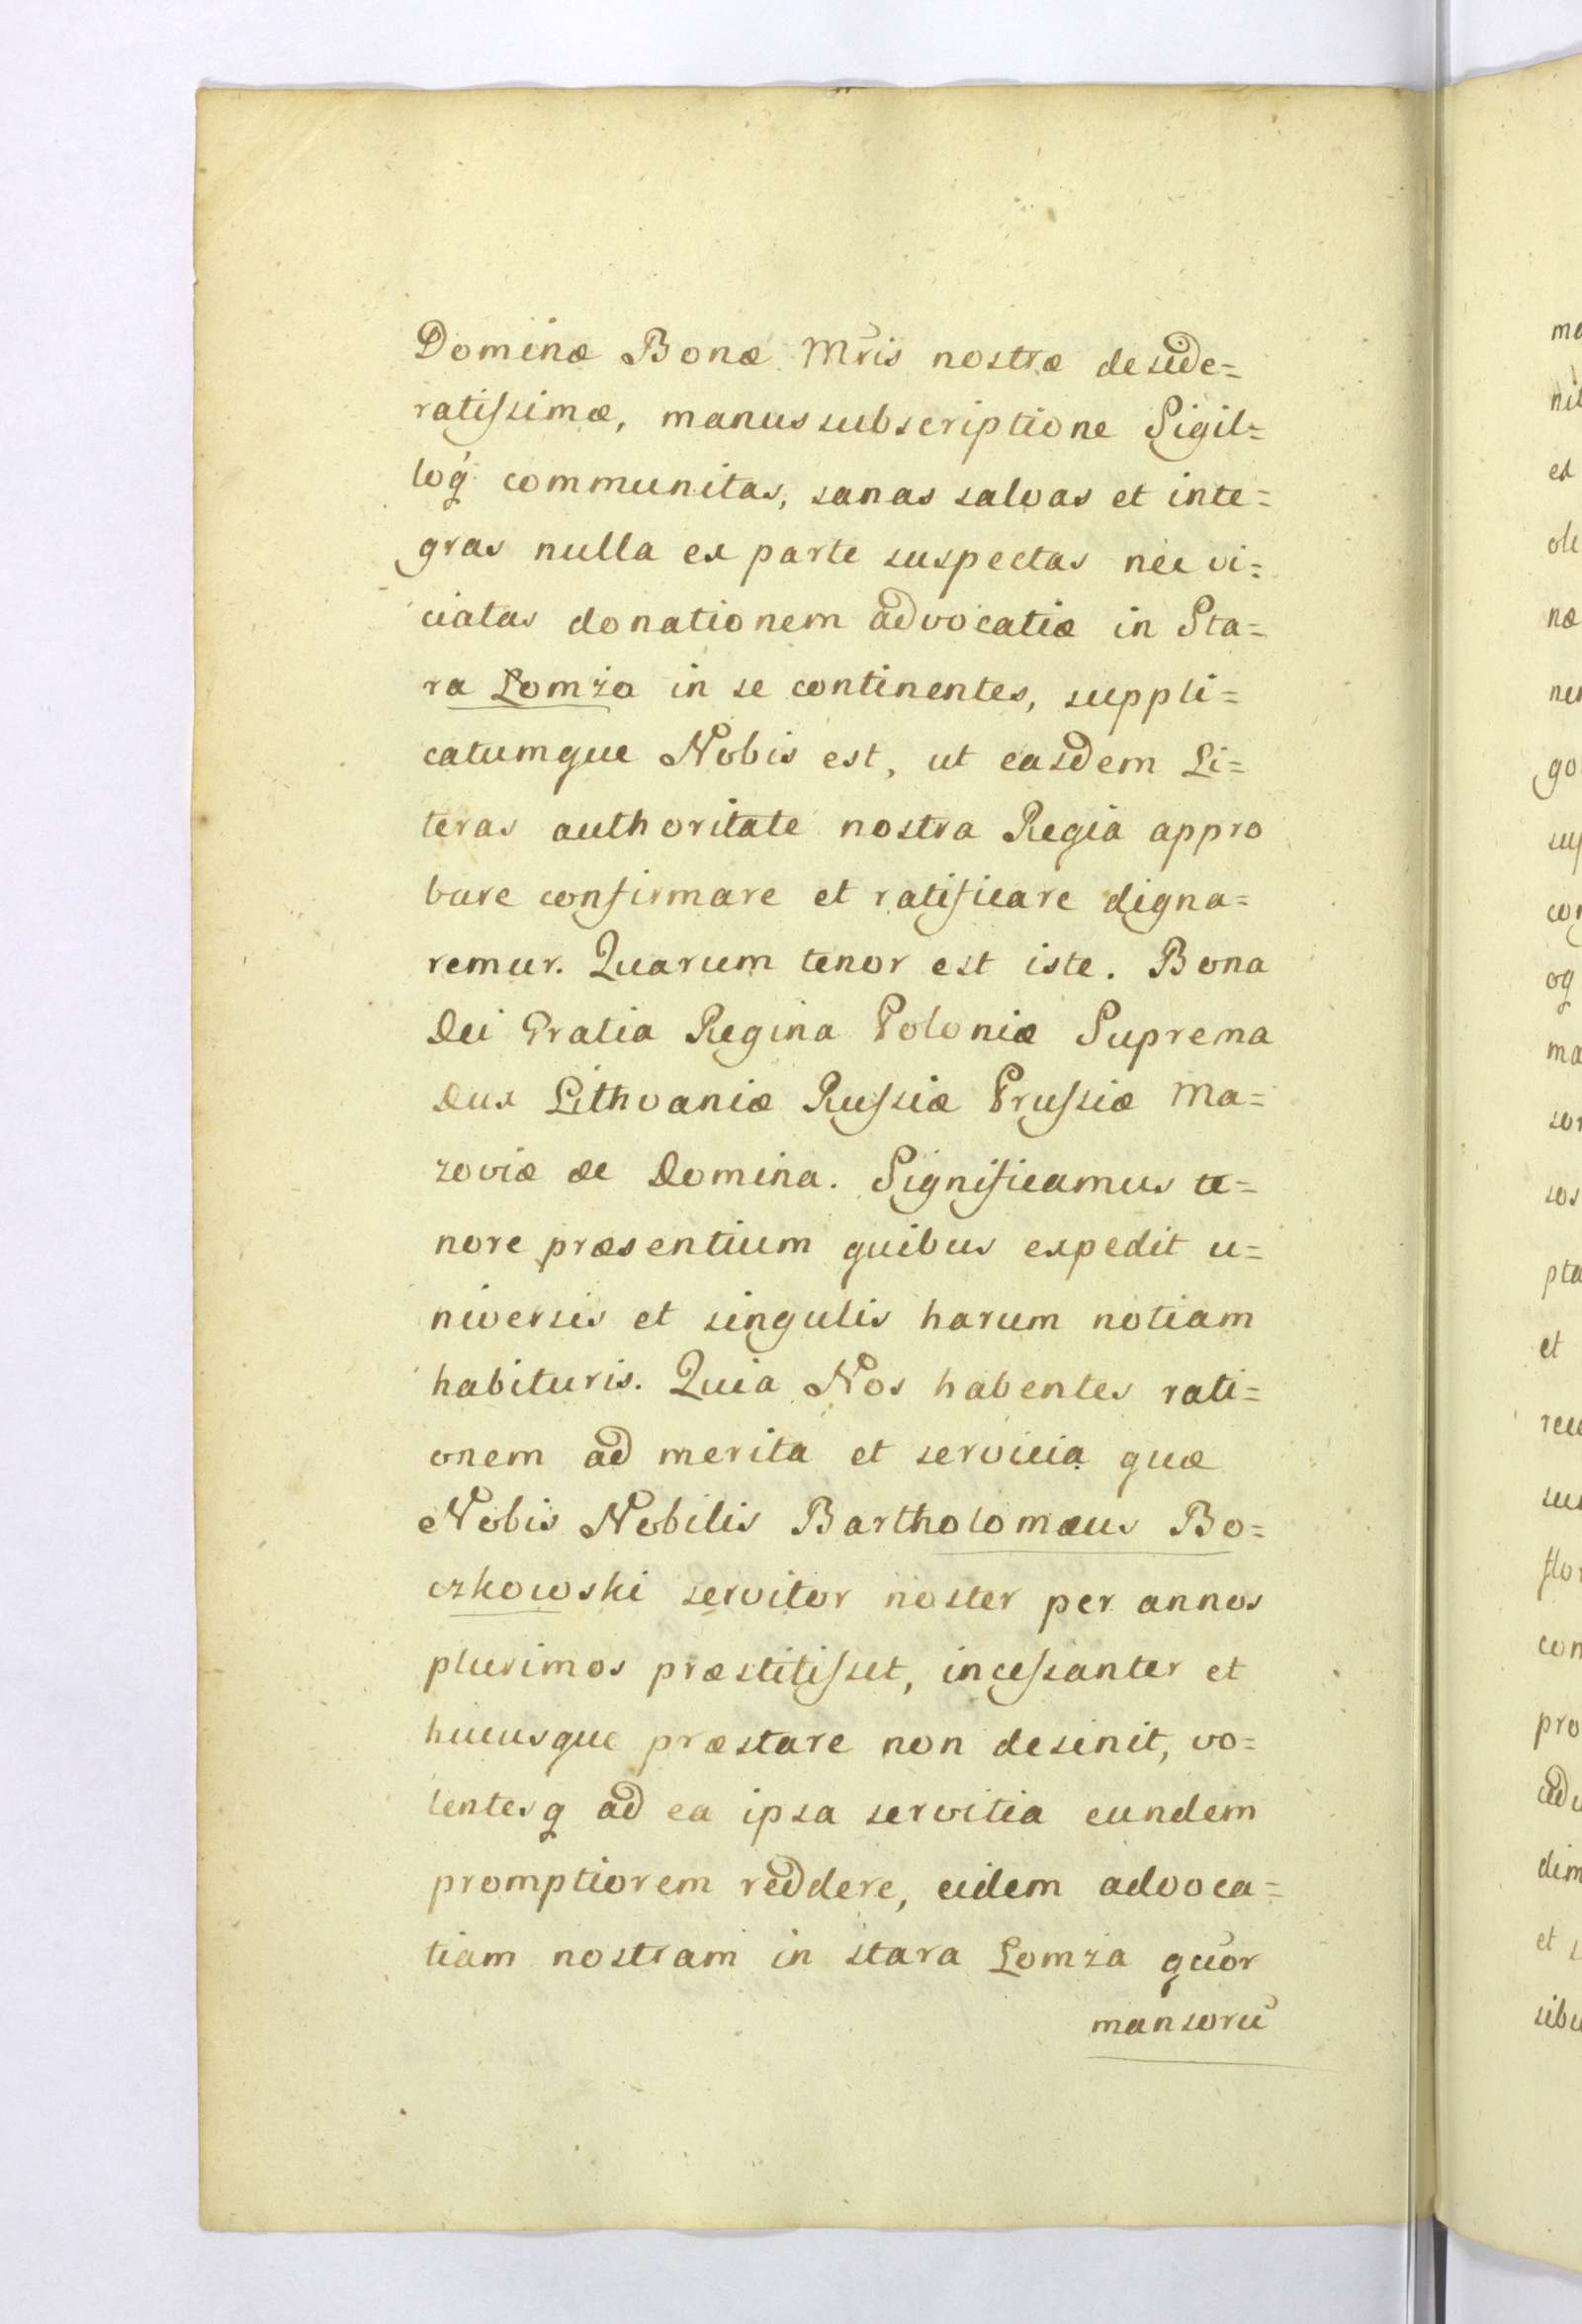 Dominæ Bonæ Mris nostræ deside=
ratissimæ, manus subscriptione Sigil=
loq́ communitas, sanas salvas et inte=
gras nulla ex parte suspectas nec vi=
ciatas donationem advocatiæ in Sta=
ra Łomża in se continentes, suppli=
catumque Nobis est, ut easdem Li=
teras authoritate nostra Regia appro
bare confirmare et ratificare digna=
remur. Quarum tenor est iste. Bona
Dei Gratia Regina Poloniæ Suprema
Dux Lithvaniæ Russiæ Prussiæ Ma=
zoviæ &c Domina. Significamus te=
nore præsentium quibus expedit u=
niversis et singulis harum notiam
habituris. Quia Nos habentes rati=
onem ad merita et servicia quæ
Nobis Nobilis Bartholomæus Bo=
czkowski servitor noster per annos
plurimos præstitisset, incessanter et
hucusque præstare non desinit, vo=
lentesq ad ea ipsa servitia eundem
promptiorem reddere, eidem advoca=
tiam nostram in stara Łomza quor
mansorū
ma
nit
et
næ
go
con
oq
ma
sos
pta
et
con
pro
dim
et s
sibu